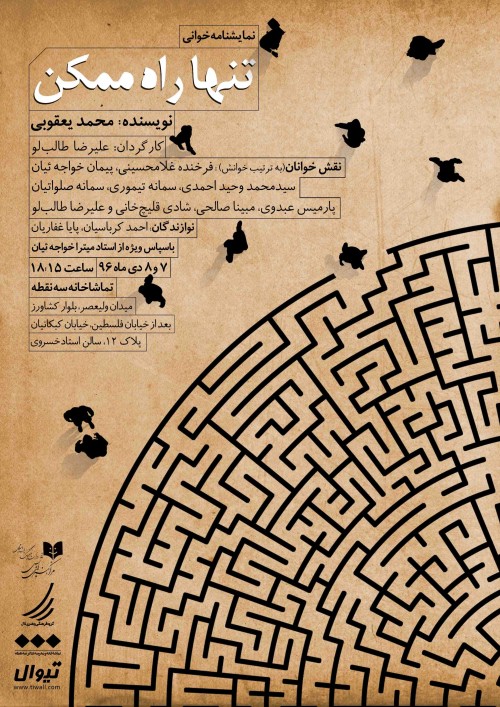 نمایشنامه خوانی
تنها راه ممکن
نویسنده: محمد یعقوبی
کارگردان: علیرضا طالب‌لو
نقش خوانان(به ترتیب خوانش): فرخنده غلامحسینی، پیمان خواجه ئیان
سیدمحمد وحید احمدی، سمانه تیموری، سمانه صلواتیان
پارمیس عبدوی، مبینا صالحی، شادی قلیچ‌خانی و علیرضا طالب‌لو
نوازندگان: احمد کرباسیان، پایا غفاریان
باسپاس ویژه از استاد میترا خواجه ئیان
۷ و ۸ دی ماه ۹۶ ساعت ۱۸:۱۵
تماشاخانه سه نقطه
میدان ولیعصر، بلوار کشاورز
بعد از خیابان فلسطین، خیابان کبکانیان
پلاک ۱۲، سالن استاد خسروی
تیوال
www.tiwall.com